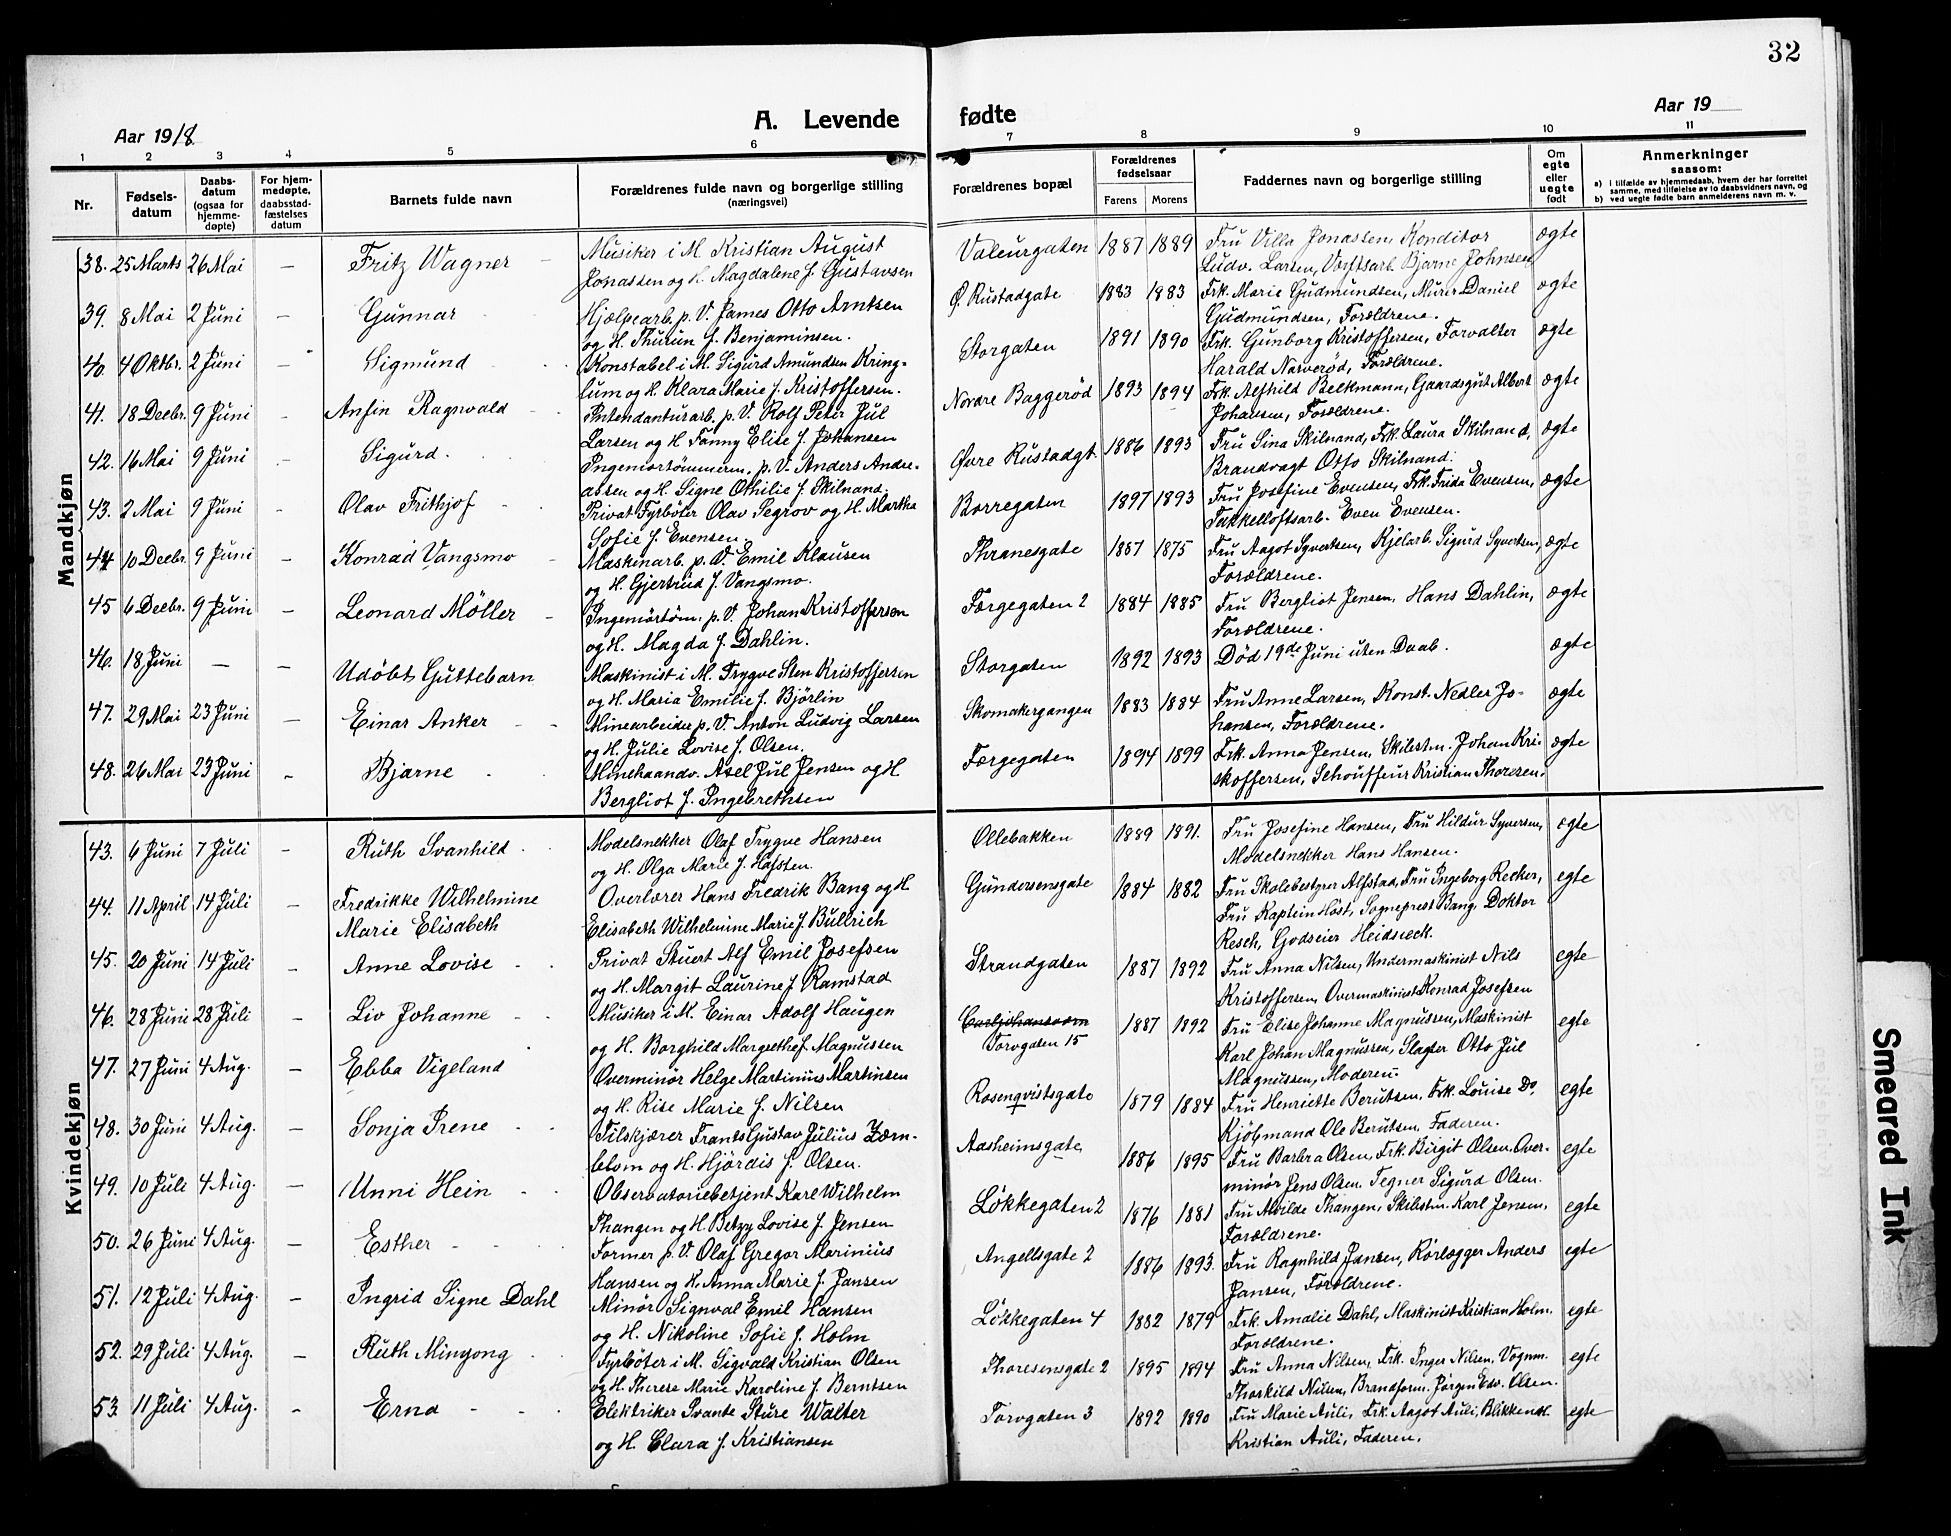 32
Aar 1918
A. Levende fødte
Aar 19
1 2 3 4 5 6 7 8 9 10 11
Nr.
Fødsels-
datum
Daabs-
datum
(ogsaa for
hjemme-
døpte)
For hjem-
medøpte,
daabsstad-
fæstelses
datum
Barnets fulde navn
Forældrenes fulde navn og borgerlige stilling
(næringsvei)
Forældrenes bopæl
Forældrenes
fødselsaar
Farens Morens
Faddernes navn og borgerlige stilling
Om
egte
eller
uegte
født
Anmerkninger
saasom:
a) i tilfælde av hjemmedaab, hvem der har forrettet
samme, med tilføielse av to daabsvidners navn, og
b) ved uegte fødte barn anmelderens navn m. v.
Mandkjøn
38. 25 Marts 26 Mai — Fritz Wagner — Musiker i M. Kristian August Valeurgaten 1887 1889 Fru Villa Jonassen, Konditor ægte
Jonassen og H. Magdalene f. Gustavsen Ludv. Larsen, Værftsarb. Bjarne Johnsen
39. 8 Mai 2 Juni — Gunnar Hjælpearb. p. V. James Otto Arntsen Ø. Rustadgate 1883 1883 Frk. Marie Gudmundsen, Murer Daniel ægte
og H. Thurun f. Benjaminsen. Gudmundsen, Forældrene.
40. 4 Oktbr. 2 Juni — Sigmund Konstabel i M. Sigurd Amundsen Kring- Storgaten 1891 1890 Frk. Gunborg Kristoffersen, Forvalter ægte
lum og H. Klara Marie f. Kristoffersen. Harald Narverød, Forældrene.
41. 18 Decbr. 9 Juni — Anfin Ragnvald Intendanturarb. p. V. Rolf Peter Jul Nordre Baggerød 1893 1894 Frk. Alfhild Beckmann, Gaardsgut Albert ægte
Larsen og H Fanny Elise f. Johansen Johansen, Forældrene.
42. 16 Mai 9 Juni — Sigurd. Ingeniørtømmerm. p. V. Anders Andre- Øvre Rustadgt 1886 1893 Fru Sina Skilnand, Frk. Laura Skilnand, ægte
assen og H. Signe Othilie f. Skilnand. Brandvagt Otto Skilnand.
43. 2 Mai 9 Juni — Olav Frithjof Privat Fyrbøter Olav Segrov og H. Martha Borregaten 1897 1893 Fru Josefine Evensen, Frk. Frida Evensen, ægte
Sofie f. Evensen Takkelloftsarb. Even Evensen.
44 10 Decbr. 9 Juni — Konrad Vangsmo Maskinarb. p. V. Emil Klausen Thranesgate 1887 1875 Fru Aagot Syvertsen, Kjelarb. Sigurd Syvertsen, ægte
og H. Gjertrud f. Vangsmo. Forældrene.
45 6 Decbr. 9 Juni — Leonard Möller Ingeniörtöm. p. V. Johan Kristoffersen Færgegaten 2 1884 1885 Fru Bergliot Jensen, Hans Dahlin, ægte
og H. Magda f. Dahlin. Forældrene.
46. 18 Juni — — Udöbt Guttebarn Maskinist i M. Trygve Sten Kristoffersen Storgaten 1892 1893 Död 19de Juni uten Daab. ægte
og H. Maria Emilie f. Björlin
47. 29 Mai 23 Juni — Einar Anker Minearbeider p. V. Anton Ludvig Larsen Skomakergangen 1883 1884 Fru Anne Larsen, Konst. Nedler Jo- ægte
og H. Julie Lovise f. Olsen. hansen, Forældrene.
48. 26 Mai 23 Juni — Bjarne Minehaandv. Axel Jul Jensen og H Færgegaten 1894 1899 Frk. Anna Jensen, Skibstm. Johan Kri- ægte
Bergliot f. Ingebrethsen stoffersen, Schouffeur Kristian Thoresen.
Kvindekjøn
43. 6 Juni 7 Juli — Ruth Svanhild Modelsnekker Olaf Trygve Hansen Ollebakken 1889 1891. Fru Josefine Hansen, Fru Hildur Syversen, egte
og H. Olga Marie f. Hafsten. Modelsnekker Hans Hansen.
44. 11 April 14 Juli — Fredrikke Wilhelmine Overlærer Hans Fredrik Bang og H Gundersensgate 1884 1882 Fru Skolebestyrer Alfstad, Fru Ingeborg Recker, egte
Marie Elisabeth Elisabeth Wilhelmine Marie f. Bullrich Fru Kaptein Höst, Sogneprest Bang, Doktor
Resch, Godseier Heidsieck.
45. 20 Juni 14 Juli — Anne Lovise Privat Stuert Alf Emil Josefsen Strandgaten 1887 1892 Fru Anna Nilsen, Undermaskinist Nils egte
og H. Margit Laurine f. Ramstad Kristoffersen, Overmaskinist Konrad Josefsen
46. 28 Juni 28 Juli — Liv Johanne Musiker i M. Einar Adolf Haugen Carljohansvern 1887 1892 Fru Elise Johanne Magnussen, Maskinist egte
og H. Borghild Margrethe f. Magnussen Torvgaten 15 Karl Johan Magnussen, Slagter Otto Jul
Magnussen, Moderen.
47. 27 Juni 4 Aug. — Ebba Vigeland Overminör Helge Martinius Martinsen Rosenqvistsgate 1879 1884 Fru Henriette Berntsen, Frk. Louise Do. egte
og H. Rise Marie f. Nilsen Kjöbmand Ole Berntsen, Faderen.
48. 30 Juni 4 Aug. — Sonja Irene Tilskjærer Frants Gustav Julius Zærn- Aasheimsgate 1886 1895 Fru Barbra Olsen, Frk. Birgit Olsen, Over- egte
blom og H. Hjördis f. Olsen. minör Jens Olsen, Tegner Sigurd Olsen.
49. 10 Juli 4 Aug. — Unni Hein Observatoriebetjent Karl Wilhelm Løkkegaten 2 1876 1881 Fru Alvilde Thangen, Skibstm. Karl Jensen, egte
Thangen og H. Betzy Lovise f. Jensen Forældrene.
50. 26 Juni 4 Aug. — Esther Former p. V. Olaf Gregor Marinius Angellsgate 2 1886 1893. Fru Ragnhild Jansen, Rørlægger Anders egte
Hansen og H. Anna Marie f. Jansen Jansen, Forældrene.
51. 12 Juli 4 Aug. — Ingrid Signe Dahl Minör Signval Emil Hansen Løkkegaten 4 1882 1879 Frk. Amalie Dahl, Maskinist Kristian Holm. egte
og H. Nikoline Sofie f. Holm Forældrene.
52. 29 Juli 4 Aug. — Ruth Minyong Fyrbøter i M. Sigvald Kristian Olsen Thoresensgate 2 1895 1894 Fru Anna Nilsen, Frk. Inger Nilsen, Vognm. egte
og H. Therese Marie Karoline f. Berntsen Thorkild Nilsen, Brandform. Jørgen Edv. Olsen.
53. 11 Juli 4 Aug. — Erna Elektriker Svante Sture Walter Torvgaten 3 1892 1890 Fru Marie Auli, Frk. Aagot Auli, Blikkensl. egte
og H. Clara f. Kristiansen Kristian Auli, Faderen.
Smeared Ink